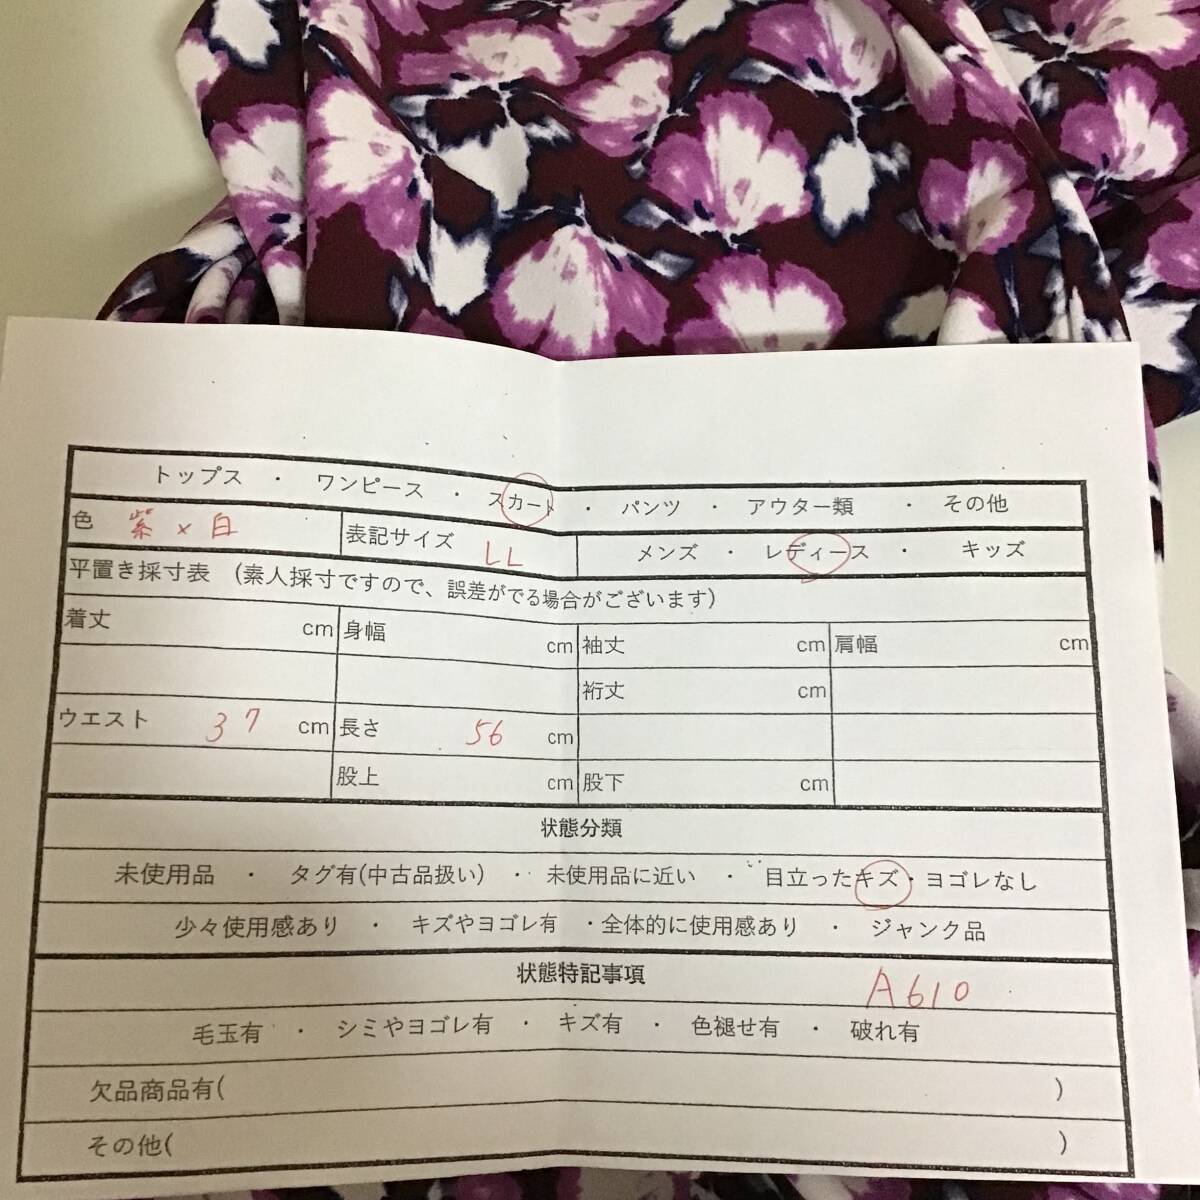 トップス ・ ワンピース ・ スカート ・ パンツ ・ アウター類 ・ その他
色 紫×白 表記サイズ LL メンズ ・ レディース ・ キッズ
平置き採寸表 (素人採寸ですので、誤差がでる場合がございます)
着丈 cm 身幅 cm 袖丈 cm 肩幅 cm
裄丈 cm
ウエスト 37 cm 長さ 56 cm
股上 cm 股下 cm
状態分類
未使用品 ・ タグ有(中古品扱い) ・ 未使用品に近い ・ 目立ったキズ・ヨゴレなし
少々使用感あり ・ キズやヨゴレ有 ・全体的に使用感あり ・ ジャンク品
状態特記事項 A610
毛玉有 ・ シミやヨゴレ有 ・ キズ有 ・ 色褪せ有 ・ 破れ有
欠品商品有( )
その他( )